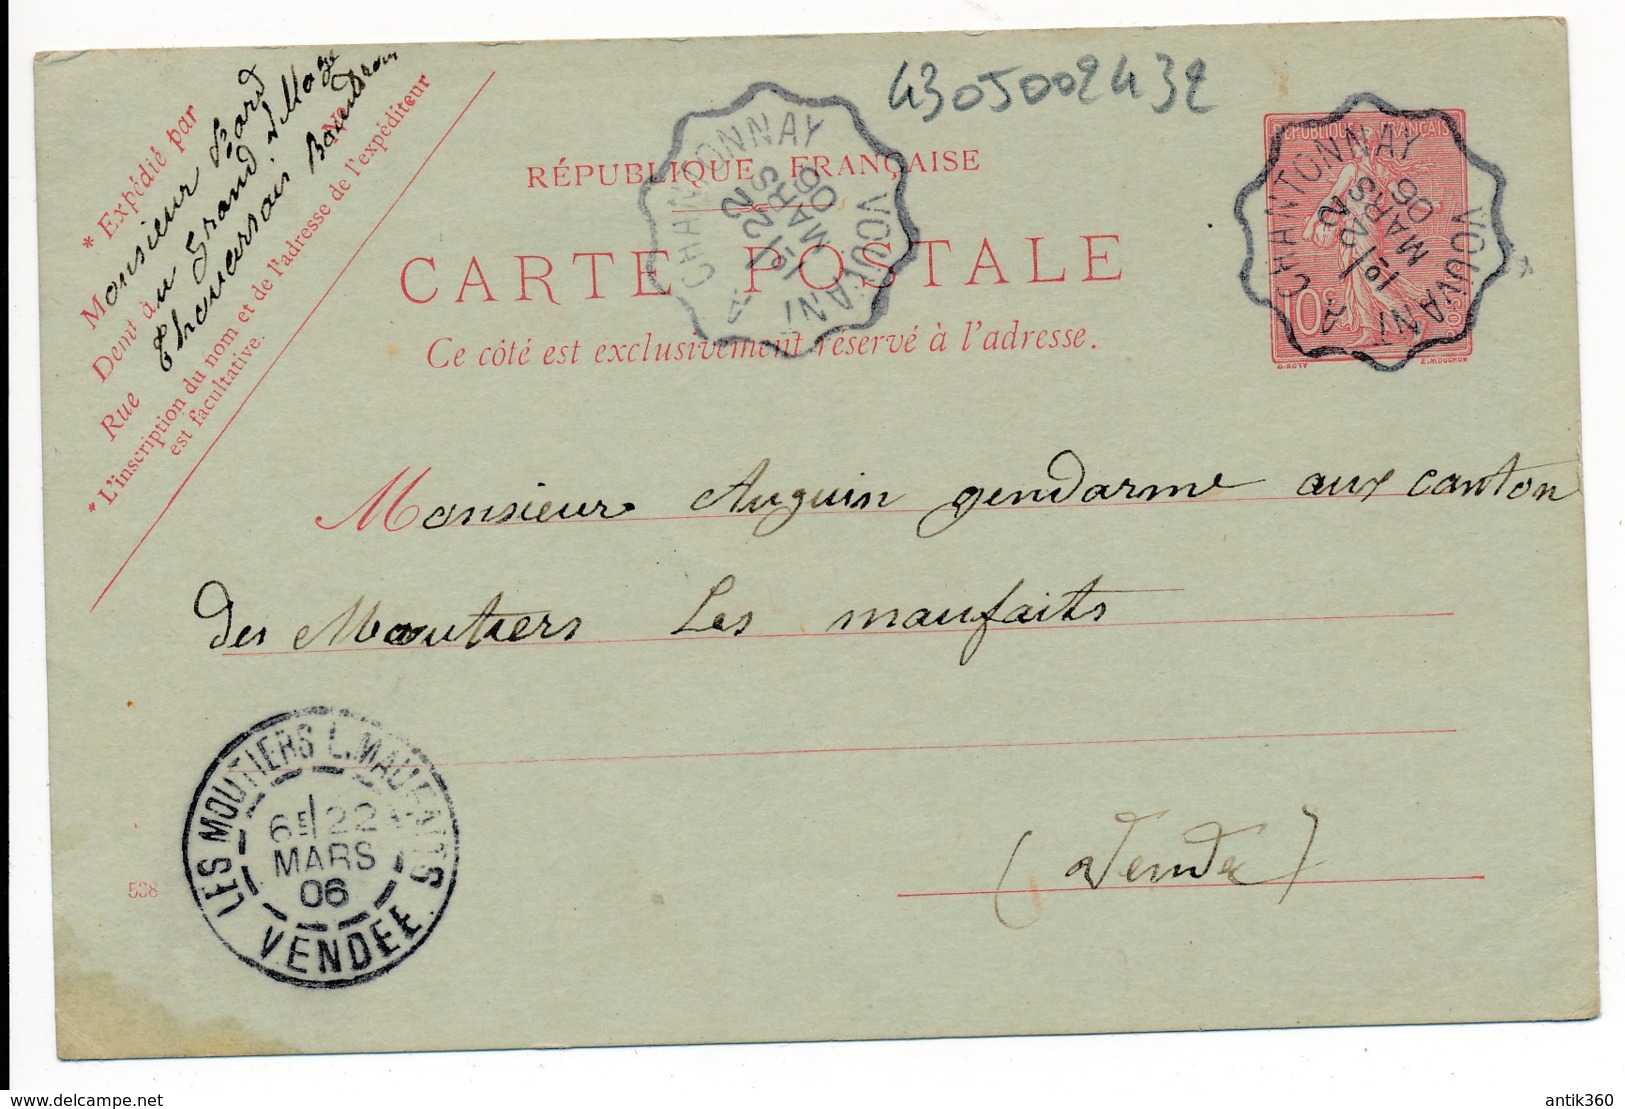 4305002432
* Expédié par
Monsieur
Demt à au Grand
Rue
N°
* L'inscription du nom et de l'adresse de l'expéditeur
est facultative.
RÉPUBLIQUE FRANÇAISE
CARTE POSTALE
Ce côté est exclusivement réservé à l'adresse.
CHANTONNAY A VOUVANT
1º/22
MARS
06
RÉPUBLIQUE FRANÇAISE
10c
O.ROTY E.MOUCHON
CHANTONNAY A VOUVANT
1º/22
MARS
06
Monsieur Auguin gendarme aux canton
des Moutiers Les maufaits
(Vendée)
LES MOUTIERS L.MAUFAITS
6E/22
MARS
06
VENDEE
538
www.delcampe.net
antik360